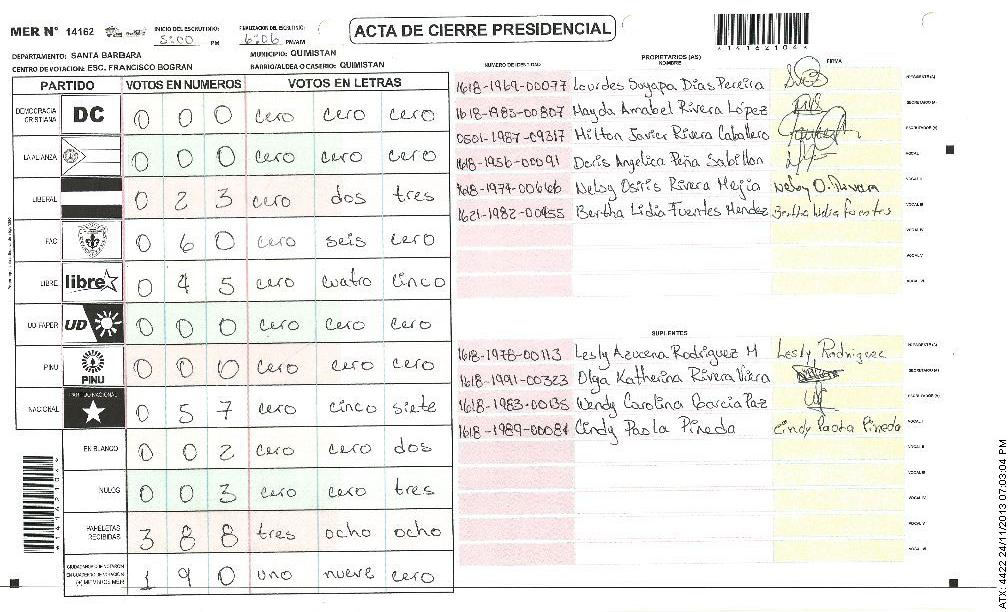 MER Nº 14162 INICIO DEL ESCRUTINIO: 5:00 PM FINALIZACION DEL ESCRUTINIO: 6:06 PM/AM ACTA DE CIERRE PRESIDENCIAL
DEPARTAMENTO: SANTA BARBARA MUNICIPIO: QUIMISTAN
CENTRO DE VOTACION: ESC. FRANCISCO BOGRAN BARRIO/ALDEA O CASERIO: QUIMISTAN
PARTIDO VOTOS EN NUMEROS VOTOS EN LETRAS
DEMOCRACIA CRISTIANA DC 0 0 0 cero cero cero
LA ALIANZA 0 0 0 cero cero cero
LIBERAL 0 2 3 cero dos tres
PAC 0 6 0 cero seis cero
LIBRE libre 0 4 5 cero cuatro cinco
UD FAPER UD 0 0 0 cero cero cero
PINU PINU 0 0 0 cero cero cero
NACIONAL PARTIDO NACIONAL 0 5 7 cero cinco siete
EN BLANCO 0 0 2 cero cero dos
NULOS 0 0 3 cero cero tres
PAPELETAS RECIBIDAS 3 8 8 tres ocho ocho
CIUDADANOS QUE VOTARON EN CUADERNO DE VOTACION (+) MIEMBROS MER 1 9 0 uno nueve cero
PROPIETARIOS (AS)
NUMERO DE IDENTIDAD NOMBRE FIRMA
1618-1969-00077 Lourdes Suyapa Dias Pereira PRESIDENTE (A)
1618-1985-00807 Hayda Annabel Rivera López SECRETARIO (A)
0501-1987-09317 Milton Javier Rivera Caballero ESCRUTADOR (A)
1618-1956-00091 Doris Angelica Peña Sabillon VOCAL I
1618-1974-00666 Nelsy Osiris Rivera Mejia VOCAL II
1621-1982-00455 Bertha Lidia Fuentes Mendez Bertha Lidia Fuentes VOCAL III
VOCAL IV
VOCAL V
VOCAL VI
SUPLENTES
1618-1978-00113 Lesly Azucena Rodriguez M Lesly Rodriguez PRESIDENTE (A)
1618-1991-00323 Olga Katherina Rivera Viera SECRETARIO (A)
1618-1983-00135 Wendy Carolina Garcia Paz ESCRUTADOR (A)
1618-1989-00084 Cindy Paola Pineda Cindy Paola Pineda VOCAL I
VOCAL II
VOCAL III
VOCAL IV
VOCAL V
VOCAL VI
ATX: 4422 24/11/2013 07:03:04 PM